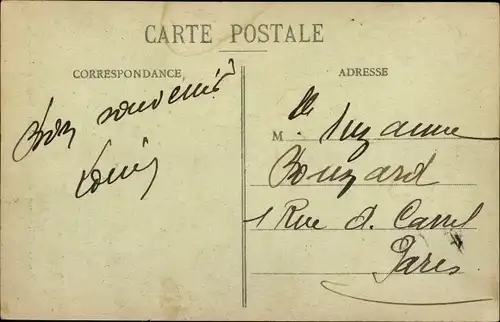 CARTE POSTALE
CORRESPONDANCE
Bon souvenir
Louis
ADRESSE
M lle Suzanne
Bouzard
1 Rue A. Carrel
Paris